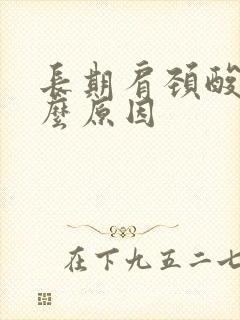 長期肩頚酸
麼原因
在下九五二七